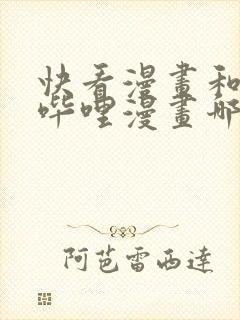 快看漫畫和
哔哩漫畫哪
阿芭雷西達